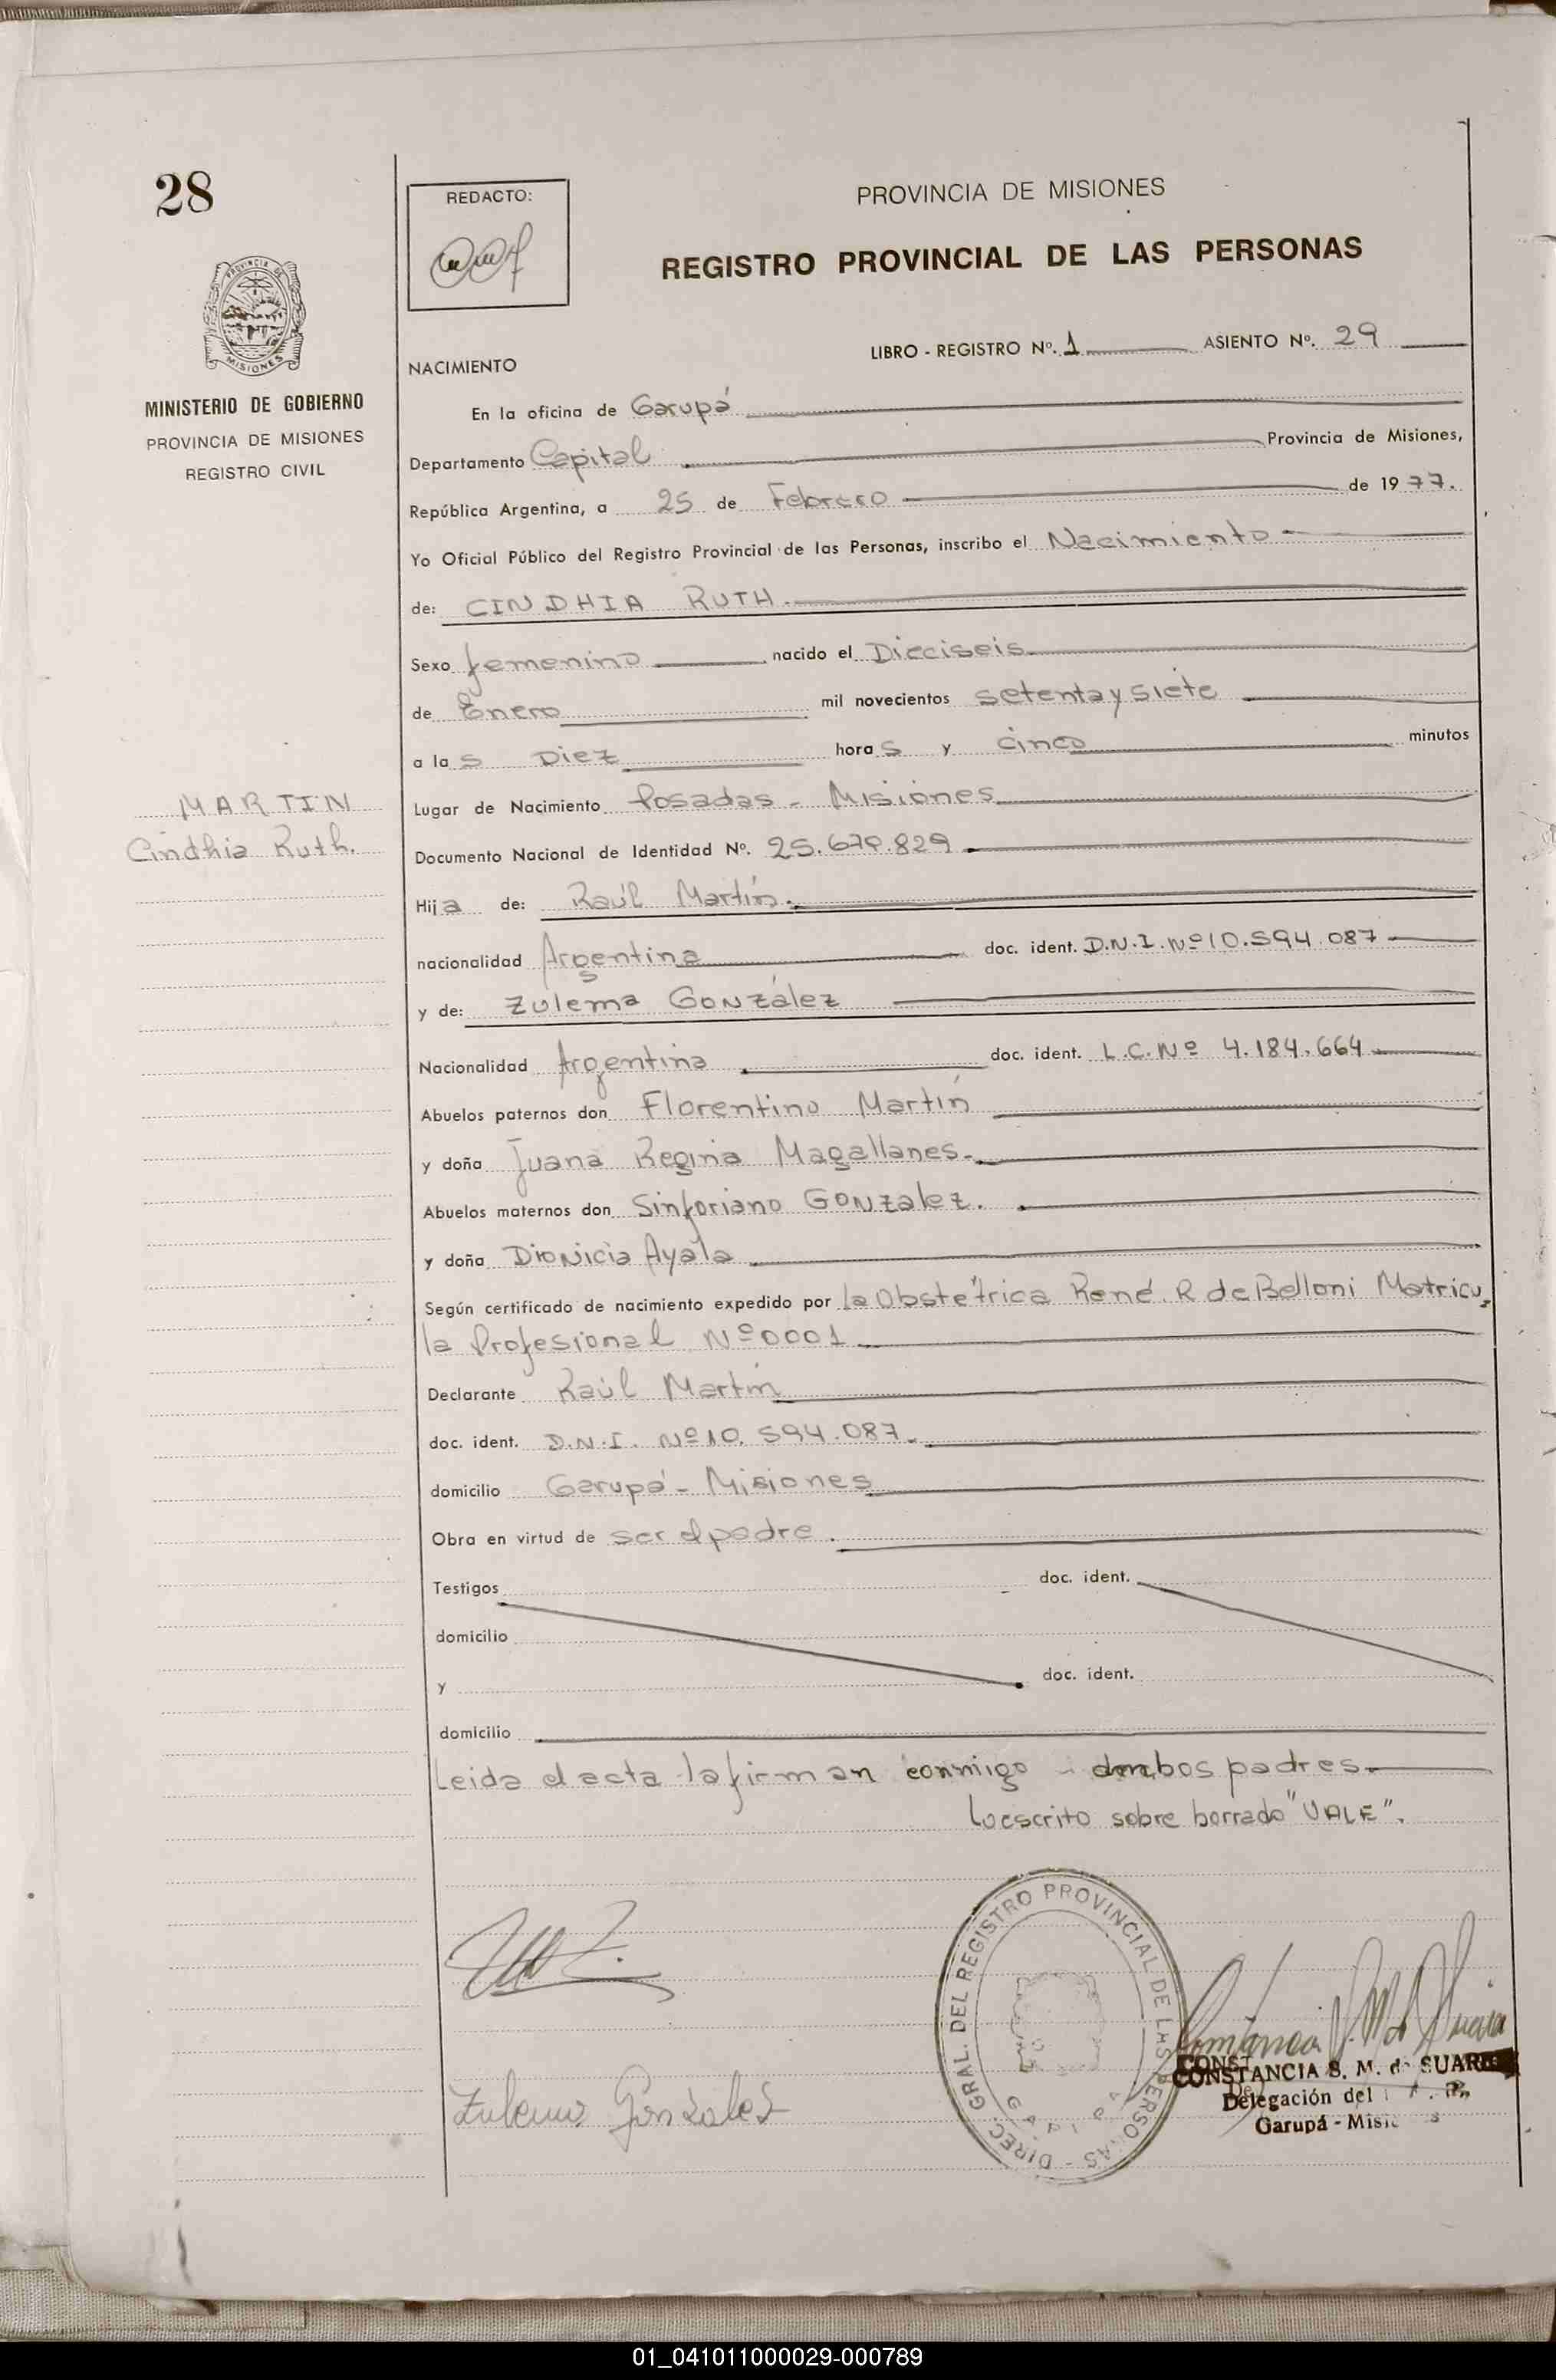 28
REDACTO:
PROVINCIA DE MISIONES
REGISTRO PROVINCIAL DE LAS PERSONAS
PROVINCIA DE
MISIONES
MINISTERIO DE GOBIERNO
PROVINCIA DE MISIONES
REGISTRO CIVIL
LIBRO - REGISTRO Nº. 1 ASIENTO Nº. 29
NACIMIENTO
En la oficina de Garupá
Departamento Capital Provincia de Misiones,
República Argentina, a 25 de Febrero de 1977.
Yo Oficial Público del Registro Provincial de las Personas, inscribo el Nacimiento
de: CINDHIA RUTH.
Sexo femenino nacido el Dieciseis
de Enero mil novecientos setenta y siete
a las Diez horas y cinco minutos
MARTIN
Cindhia Ruth.
Lugar de Nacimiento Posadas - Misiones
Documento Nacional de Identidad Nº. 25.670.829
Hija de: Raúl Martín.
nacionalidad Argentina doc. ident. D.N.I. Nº 10.594.087
y de: Zulema González
Nacionalidad Argentina doc. ident. L.C. Nº 4.184.664
Abuelos paternos don Florentino Martín
y doña Juana Regina Magallanes.
Abuelos maternos don Sinforiano Gonzalez.
y doña Dionicia Ayala
Según certificado de nacimiento expedido por la Obstétrica René R de Belloni Matricu
la Profesional Nº 0001
Declarante Raúl Martín
doc. ident. D.N.I. Nº 10.594.087.
domicilio Garupá - Misiones
Obra en virtud de ser el padre.
Testigos doc. ident.
domicilio
y doc. ident.
domicilio
Leida el acta la firman conmigo ambos padres.
Lo escrito sobre borrado "VALE".
DIREC. GRAL. DEL REGISTRO PROVINCIAL DE LAS PERSONAS -
Zulema Gonzales
CONSTANCIA S. M. de SUAR
Delegación del
Garupá - Misiones
01_041011000029-000789